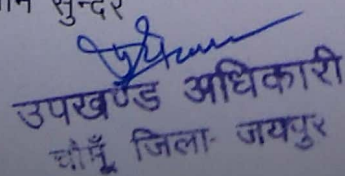 सुन्दर
उपखण्ड अधिकारी
चौमूँ जिला- जयपुर